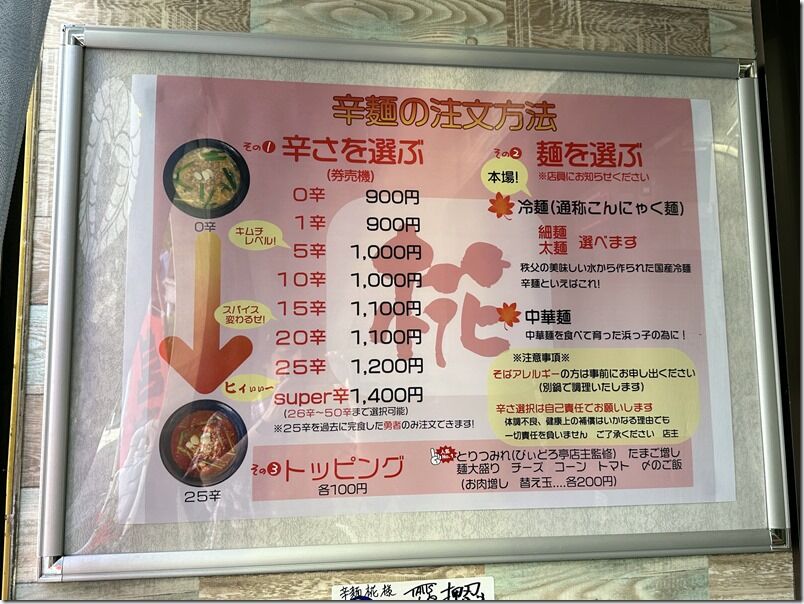 辛麺の注文方法
その1 辛さを選ぶ
(券売機)
0辛 900円
1辛 900円
5辛 1,000円
10辛 1,000円
15辛 1,100円
20辛 1,100円
25辛 1,200円
super辛 1,400円
(26辛～50辛まで選択可能)
※25辛を過去に完食した勇者のみ注文できます!
0辛
キムチ
レベル!
スパイス
変わるぜ!
ヒィぃぃー
25辛
その2 麺を選ぶ
※店員にお知らせください
本場!
冷麺(通称こんにゃく麺)
細麺
太麺 選べます
秩父の美味しい水から作られた国産冷麺
辛麺といえばこれ!
中華麺
中華麺を食べて育った浜っ子の為に!
※注意事項※
そばアレルギーの方は事前にお申し出ください
(別鍋で調理いたします)
辛さ選択は自己責任でお願いします
体調不良、健康上の補償はいかなる理由でも
一切責任を負いません ご了承ください 店主
その3 トッピング
各100円
とりつみれ(びぃどろ亭店主監修) たまご増し
麺大盛り チーズ コーン トマト 〆のご飯
(お肉増し 替え玉....各200円)
辛麺 椛 様